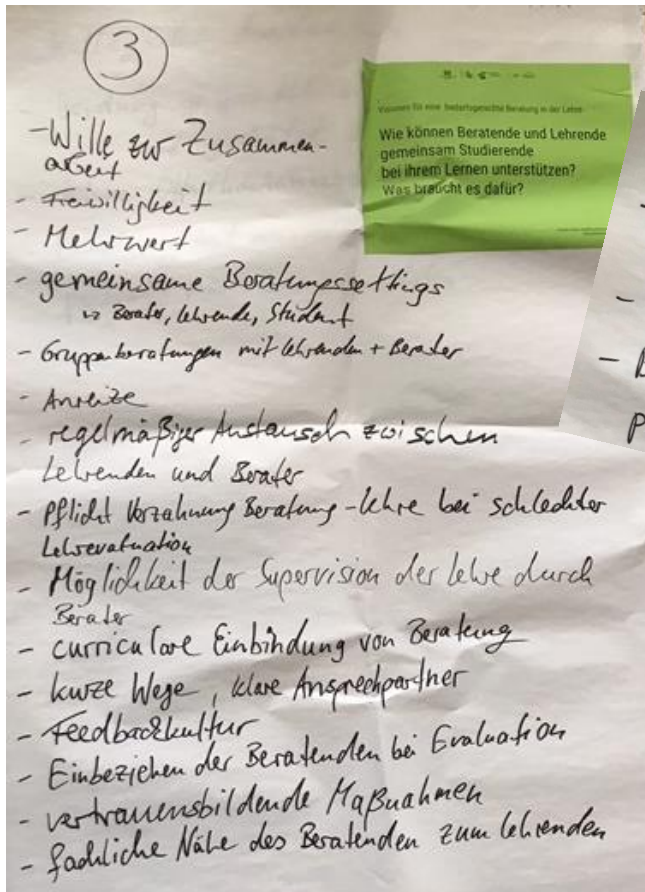 3
Visionen für eine bedarfsgerechte Beratung in der Lehre
Wie können Beratende und Lehrende
gemeinsam Studierende
bei ihrem Lernen unterstützen?
Was braucht es dafür?
- Wille zur Zusammen-
arbeit
- Freiwilligkeit
- Mehrwert
- gemeinsame Beratungssettings
Berater, Lehrende, Student
- Gruppenberatungen mit Lehrenden + Berater
- Anreize
- regelmäßiger Austausch zwischen
Lehrenden und Berater
- Pflicht Verzahnung Beratung - Lehre bei schlechter
Lehrevaluation
- Möglichkeit der Supervision der Lehre durch
Berater
- curriculare Einbindung von Beratung
- kurze Wege, klare Ansprechpartner
- Feedbackkultur
- Einbeziehen der Beratenden bei Evaluation
- vertrauensbildende Maßnahmen
- fachliche Nähe des Beratenden zum Lehrenden